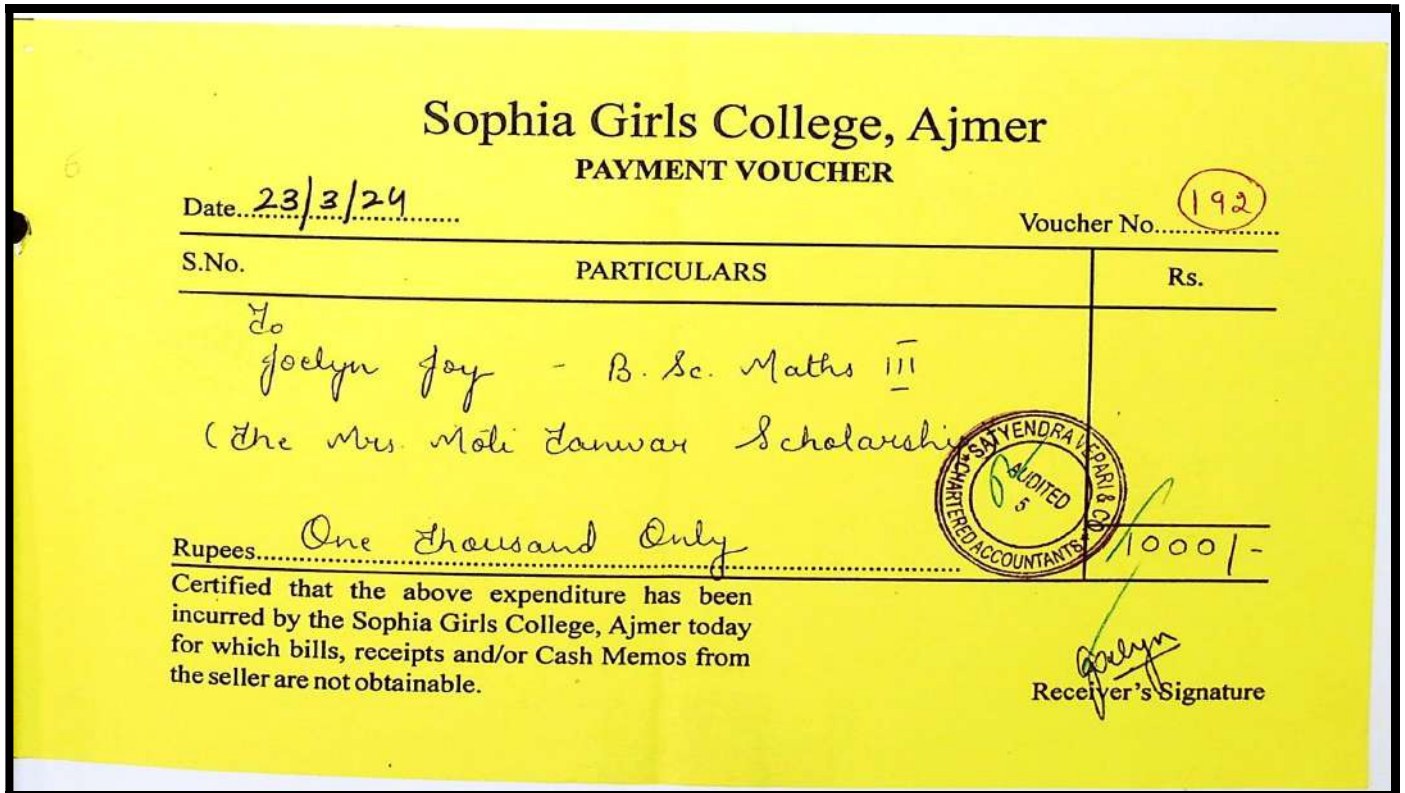 Sophia Girls College, Ajmer
PAYMENT VOUCHER
Date 23/3/24
Voucher No. 192
S.No. PARTICULARS Rs.
To
Joelyn Joy - B. Sc. Maths III
(The Mrs. Moti Tanwar Scholarship
SATYENDRA VEPARI & CO
CHARTERED ACCOUNTANTS
AUDITED
5
Rupees One Thousand Only 1000/-
Certified that the above expenditure has been
incurred by the Sophia Girls College, Ajmer today
for which bills, receipts and/or Cash Memos from
the seller are not obtainable.
Joelyn
Receiver's Signature